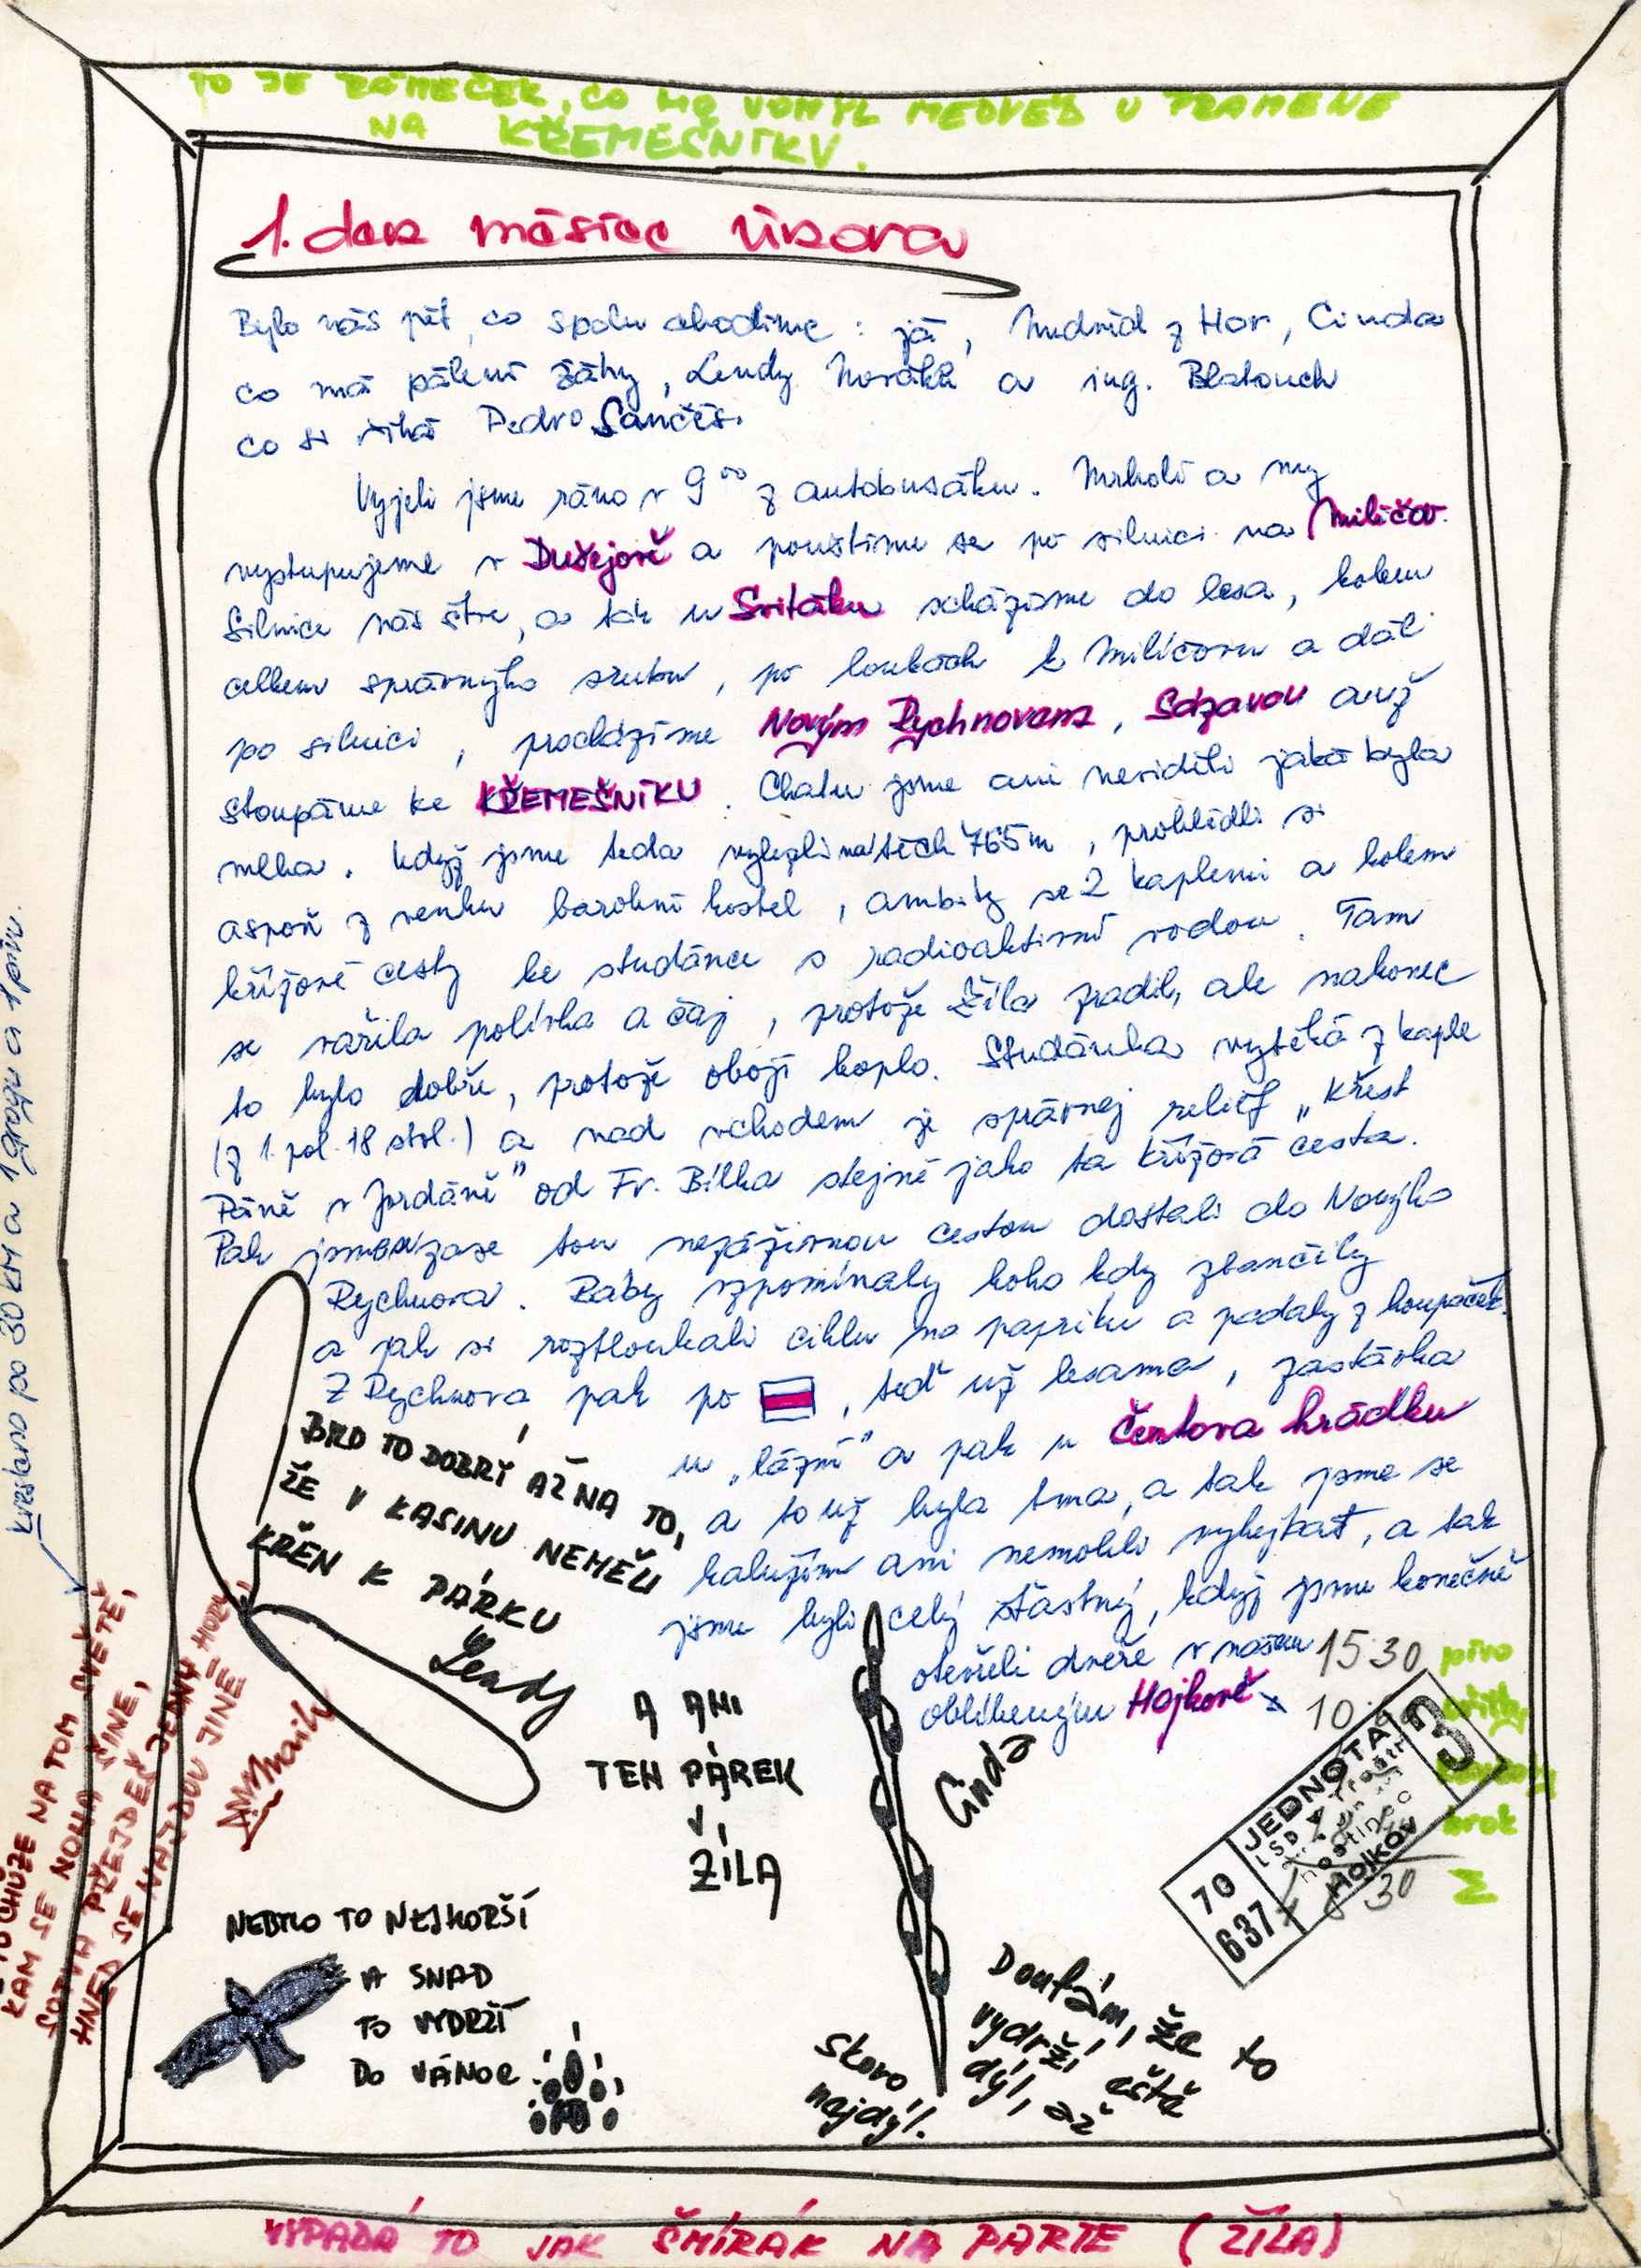 TO JE RÁMEČEK, CO MĄ VOMYL MEDVĚD U PRAMENE
NA KŘEMEŠNÍKU.
1. den měsíce února
Bylo nás pět, co spolu chodíme : já, Mudrid z Hor, Cinda
co má pálení žáhy, Lendy Noráků a ing. Blatouch
co si říká Pedro Sančés.
Vyjeli jsme ráno v 9°° z autobusáku. Mrholí a my
vystupujeme v Dušejově a pouštíme se po silnici na Miličov.
Silnice nás štve, a tak u Svitáku scházíme do lesa, kolem
celkem správnýho srubu, po loukách k Miličovu a dál
po silnici, procházíme Novým Rychnovem, Sázavou a už
stoupáme ke KŘEMEŠNÍKU. Chatu jsme ani neviděli jaká byla
mlha. Když jsme teda vylezli na těch 765 m, prohlédli si
aspoň z venku barokní kostel, ambity se 2 kaplemi a kolem
křížové cesty ke studánce s radioaktivní vodou. Tam
se vařila polívka a čaj, protože Žíla zradil, ale nakonec
to bylo dobře, protože obojí koplo. Studánka vytéká z kaple
(z 1. pol. 18 stol.) a nad vchodem je správnej reliéf „Křest
Páně v Jordáně" od Fr. Bílka stejně jako ta křížová cesta.
Pak jsme se zase tou nezáživnou cestou dostali do Novýho
Rychnova. Báby vzpomínaly koho kdy zbančily
a jak si roztloukali cihlu na papriku a padaly z houpaček.
Z Rychnova pak po , teď už lesama, zastávka
u „lázní" a pak u Čertova hrádku
a to už byla tma, a tak jsme se
kalužím ani nemohli vyhejbat, a tak
jsme byli celý šťastný, když jsme konečně
otevřeli dveře v našem
oblíbeným Hojkově
BYLO TO DOBRÝ AŽ NA TO,
ŽE V KASINU NEMĚLI
KŘEN K PÁRKU
Lendy
A ANI
TEN PÁREK
V.
ŽÍLA
Cinda
15.30 pivo
10
brok
30 Σ
JEDNOTA
LSD
hostinec
Hojkov
3
70
637
NEBYLO TO NEJHORŠÍ
A SNAD
TO VYDRŽÍ
DO VÁNOC.
Doufám, že to
vydrží eště
dýl, až
skoro
nejdýl!
kresleno po 30 KM a 1 grogu a 1 pivu.
CHŮZE NA TOM SVĚTĚ,
KAM SE NOHA ŠINE,
SOTVA PŘEJDEŠ JEDNY HORY,
HNED SE NAJDOU JINÉ –
VYPADÁ TO JAK ŠMÍRÁK NA PARTE (ŽÍLA)